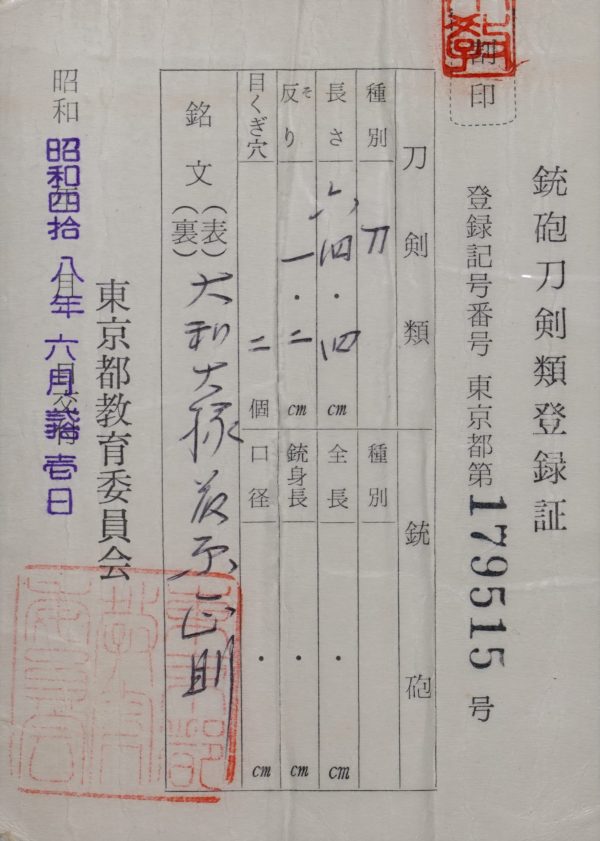 銃砲刀剣類登録証
登録記号番号 東京都第179515号
割印
刀剣類
種別 刀
長さ 六四・四 cm
反り そ 一・二 cm
目くぎ穴 二 個
銘文 (表)(裏) 大和大掾藤原正則
銃砲
種別
全長 ・ cm
銃身長 ・ cm
口径 ・ cm
東京都教育委員会
昭和 年 月 日交付
昭和四拾八年六月弐拾壱日